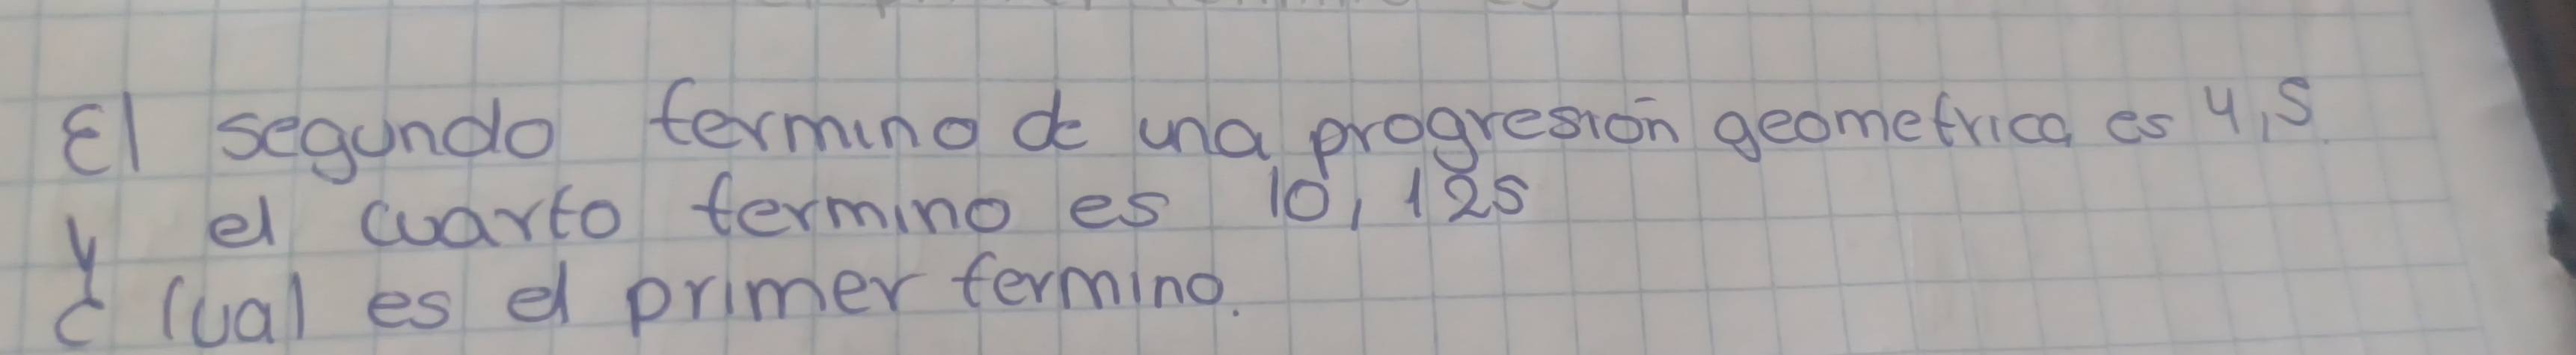 El segundo termino de una progresión geometrica es 4,5
y el cuarto termino es 10,125
¿ Cual es el primer termino.